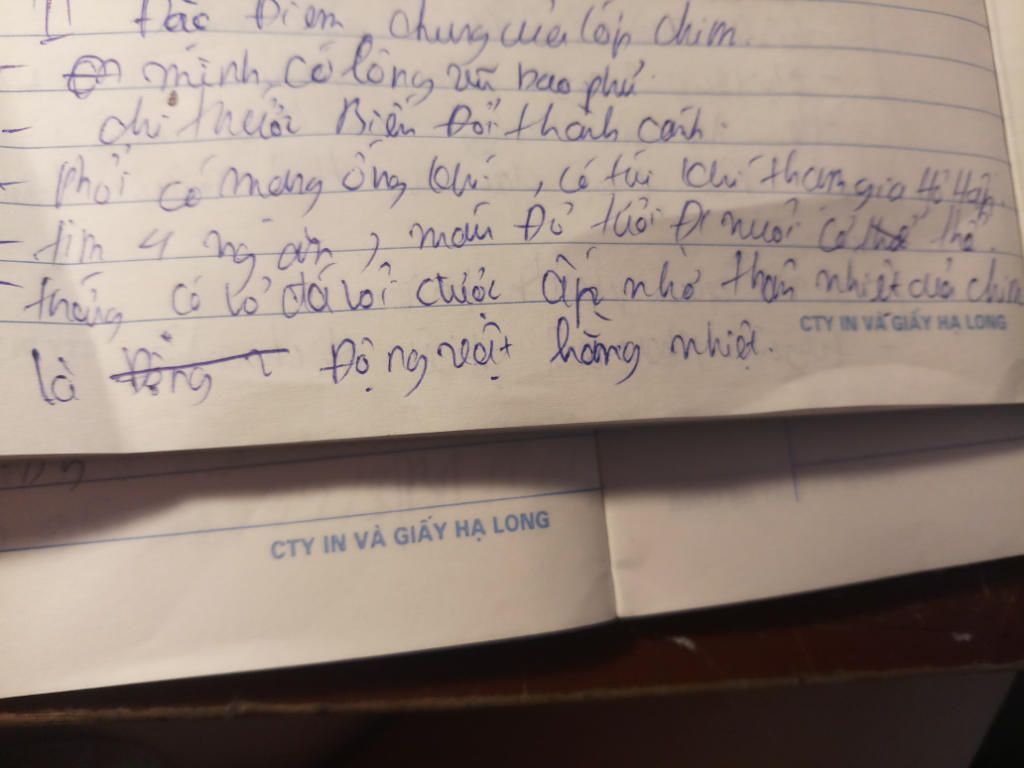 II Đặc Điểm chung của lớp chim.
- mình có lông vũ bao phủ.
- chi trước Biến Đổi thành cánh.
- phổi có mang ống khí, có túi khí tham gia hô hấp.
- tim 4 ngăn, máu Đỏ tươi Đi nuôi cơ thể.
- trứng có vỏ đá vôi được ấp nhờ thân nhiệt của chim
CTY IN VÀ GIẤY HẠ LONG
là Động vật hằng nhiệt.
CTY IN VÀ GIẤY HẠ LONG